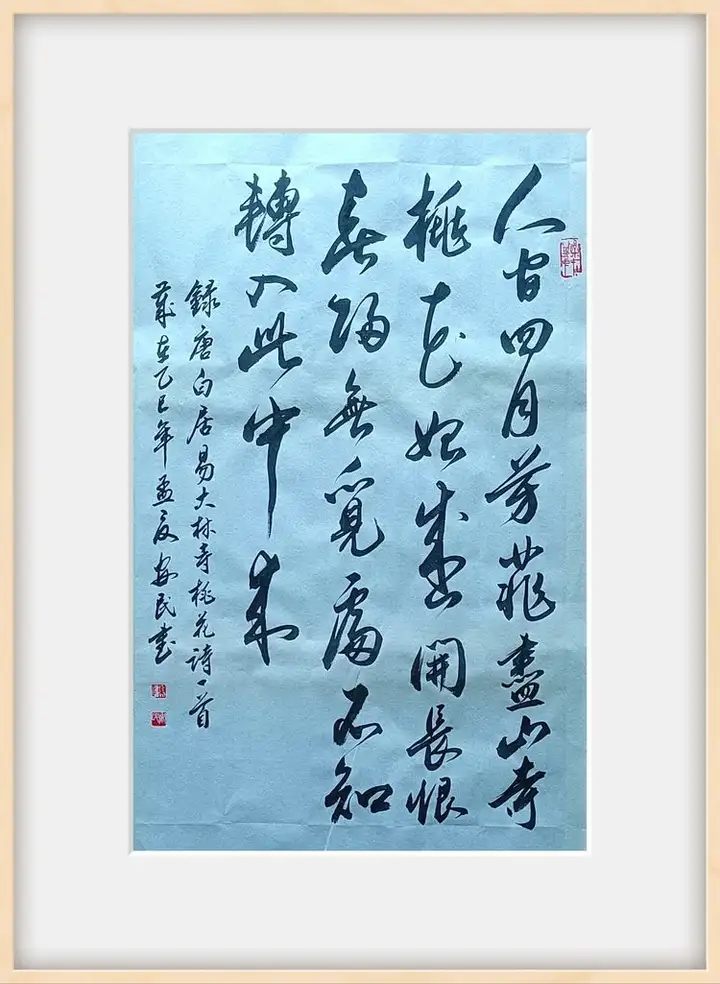 人間四月芳菲盡山寺
桃花始盛開長恨
春歸無覓處不知
轉入此中來
録唐白居易大林寺桃花詩一首
歲在乙巳年孟夏安民書